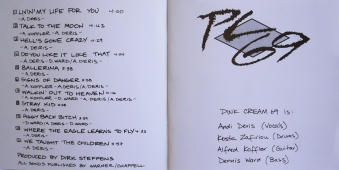 LIVIN' MY LIFE FOR YOU 4:00
- A. DERIS -
TALK TO THE MOON 4:43
- A. KOFFLER - A. DERIS -
HELL'S GONE CRAZY
- A. DERIS -
DO YOU LIKE IT LIKE THAT
- A. DERIS - D. WARD / A. DERIS -
BALLERINA
- A. DERIS -
SIGNS OF DANGER
- A. KOFFLER - A. DERIS / A. DERIS -
WALKIN' OUT TO HEAVEN
- A. KOFFLER - D. WARD - A. DERIS / A. DERIS -
STRAY KID
- A. DERIS -
PIGGY BACK BITCH
- D. WARD / A. DERIS - D. WARD -
WHERE THE EAGLE LEARNS TO FLY
- A. DERIS -
WE TAUGHT THE CHILDREN
- A. DERIS -
PRODUCED BY DIRK STEFFENS
ALL SONGS PUBLISHED BY WARNER/CHAPPELL
PC69
PINK CREAM 69 IS:
Andi Deris (Vocals)
Kosta Zafiriou (Drums)
Alfred Koffler (Guitar)
Dennis Ward (Bass)